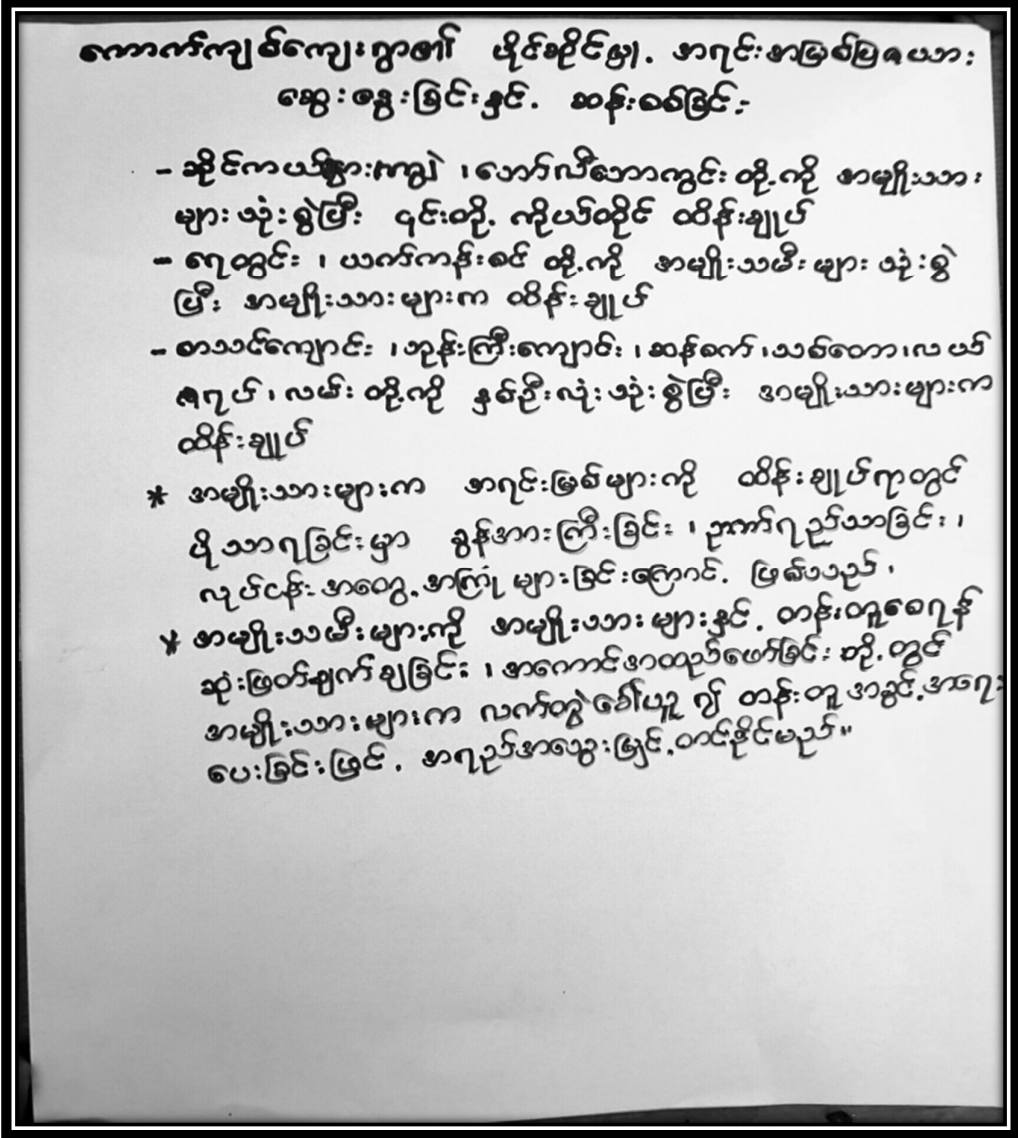 ကောက်ကျစ်ကျေးရွာ၏ ပိုင်ဆိုင်မှု့ အရင်းအမြစ်ပြဇယား
ဆွေးနွေးခြင်းနှင့် ဆန်းစစ်ခြင်း
- ဆိုင်ကယ် ၊ ဘော်လီဘောကွင်း တို့ကို အမျိုးသား
များ သုံးစွဲပြီး ၎င်းတို့ ကိုယ်တိုင် ထိန်းချုပ်
- ရေတွင်း ၊ ယက်ကန်းစင် တို့ကို အမျိုးသမီးများ သုံးစွဲ
ပြီး အမျိုးသားများက ထိန်းချုပ်
- စာသင်ကျောင်း ၊ဘုန်းကြီးကျောင်း ၊ဆန်စက် ၊သစ်တော ၊လယ်
ဇရပ် ၊ လမ်း တို့ကို နှစ်ဦးလုံး သုံးစွဲပြီး အမျိုးသားများက
ထိန်းချုပ်
* အမျိုးသားများက အရင်းမြစ်များကို ထိန်းချုပ်ရာတွင်
ပိုသာရခြင်းမှာ ခွန်အားကြီးခြင်း ၊ ဉာဏ်ရည်သာခြင်း ၊
လုပ်ငန်းအတွေ့အကြုံ များခြင်းကြောင့် ဖြစ်သည် ၊
* အမျိုးသမီးများကို အမျိုးသားများနှင့် တန်းတူစေရန်
ဆုံးဖြတ်ချက်ချခြင်း ၊ အကောင်အထည်ဖော်ခြင်း တို့တွင်
အမျိုးသားများက လက်တွဲခေါ်ယူ ၍ တန်းတူ အခွင့်အရေး
ပေးခြင်းဖြင့် အရည်အသွေးမြှင့်တင်နိုင်မည်။